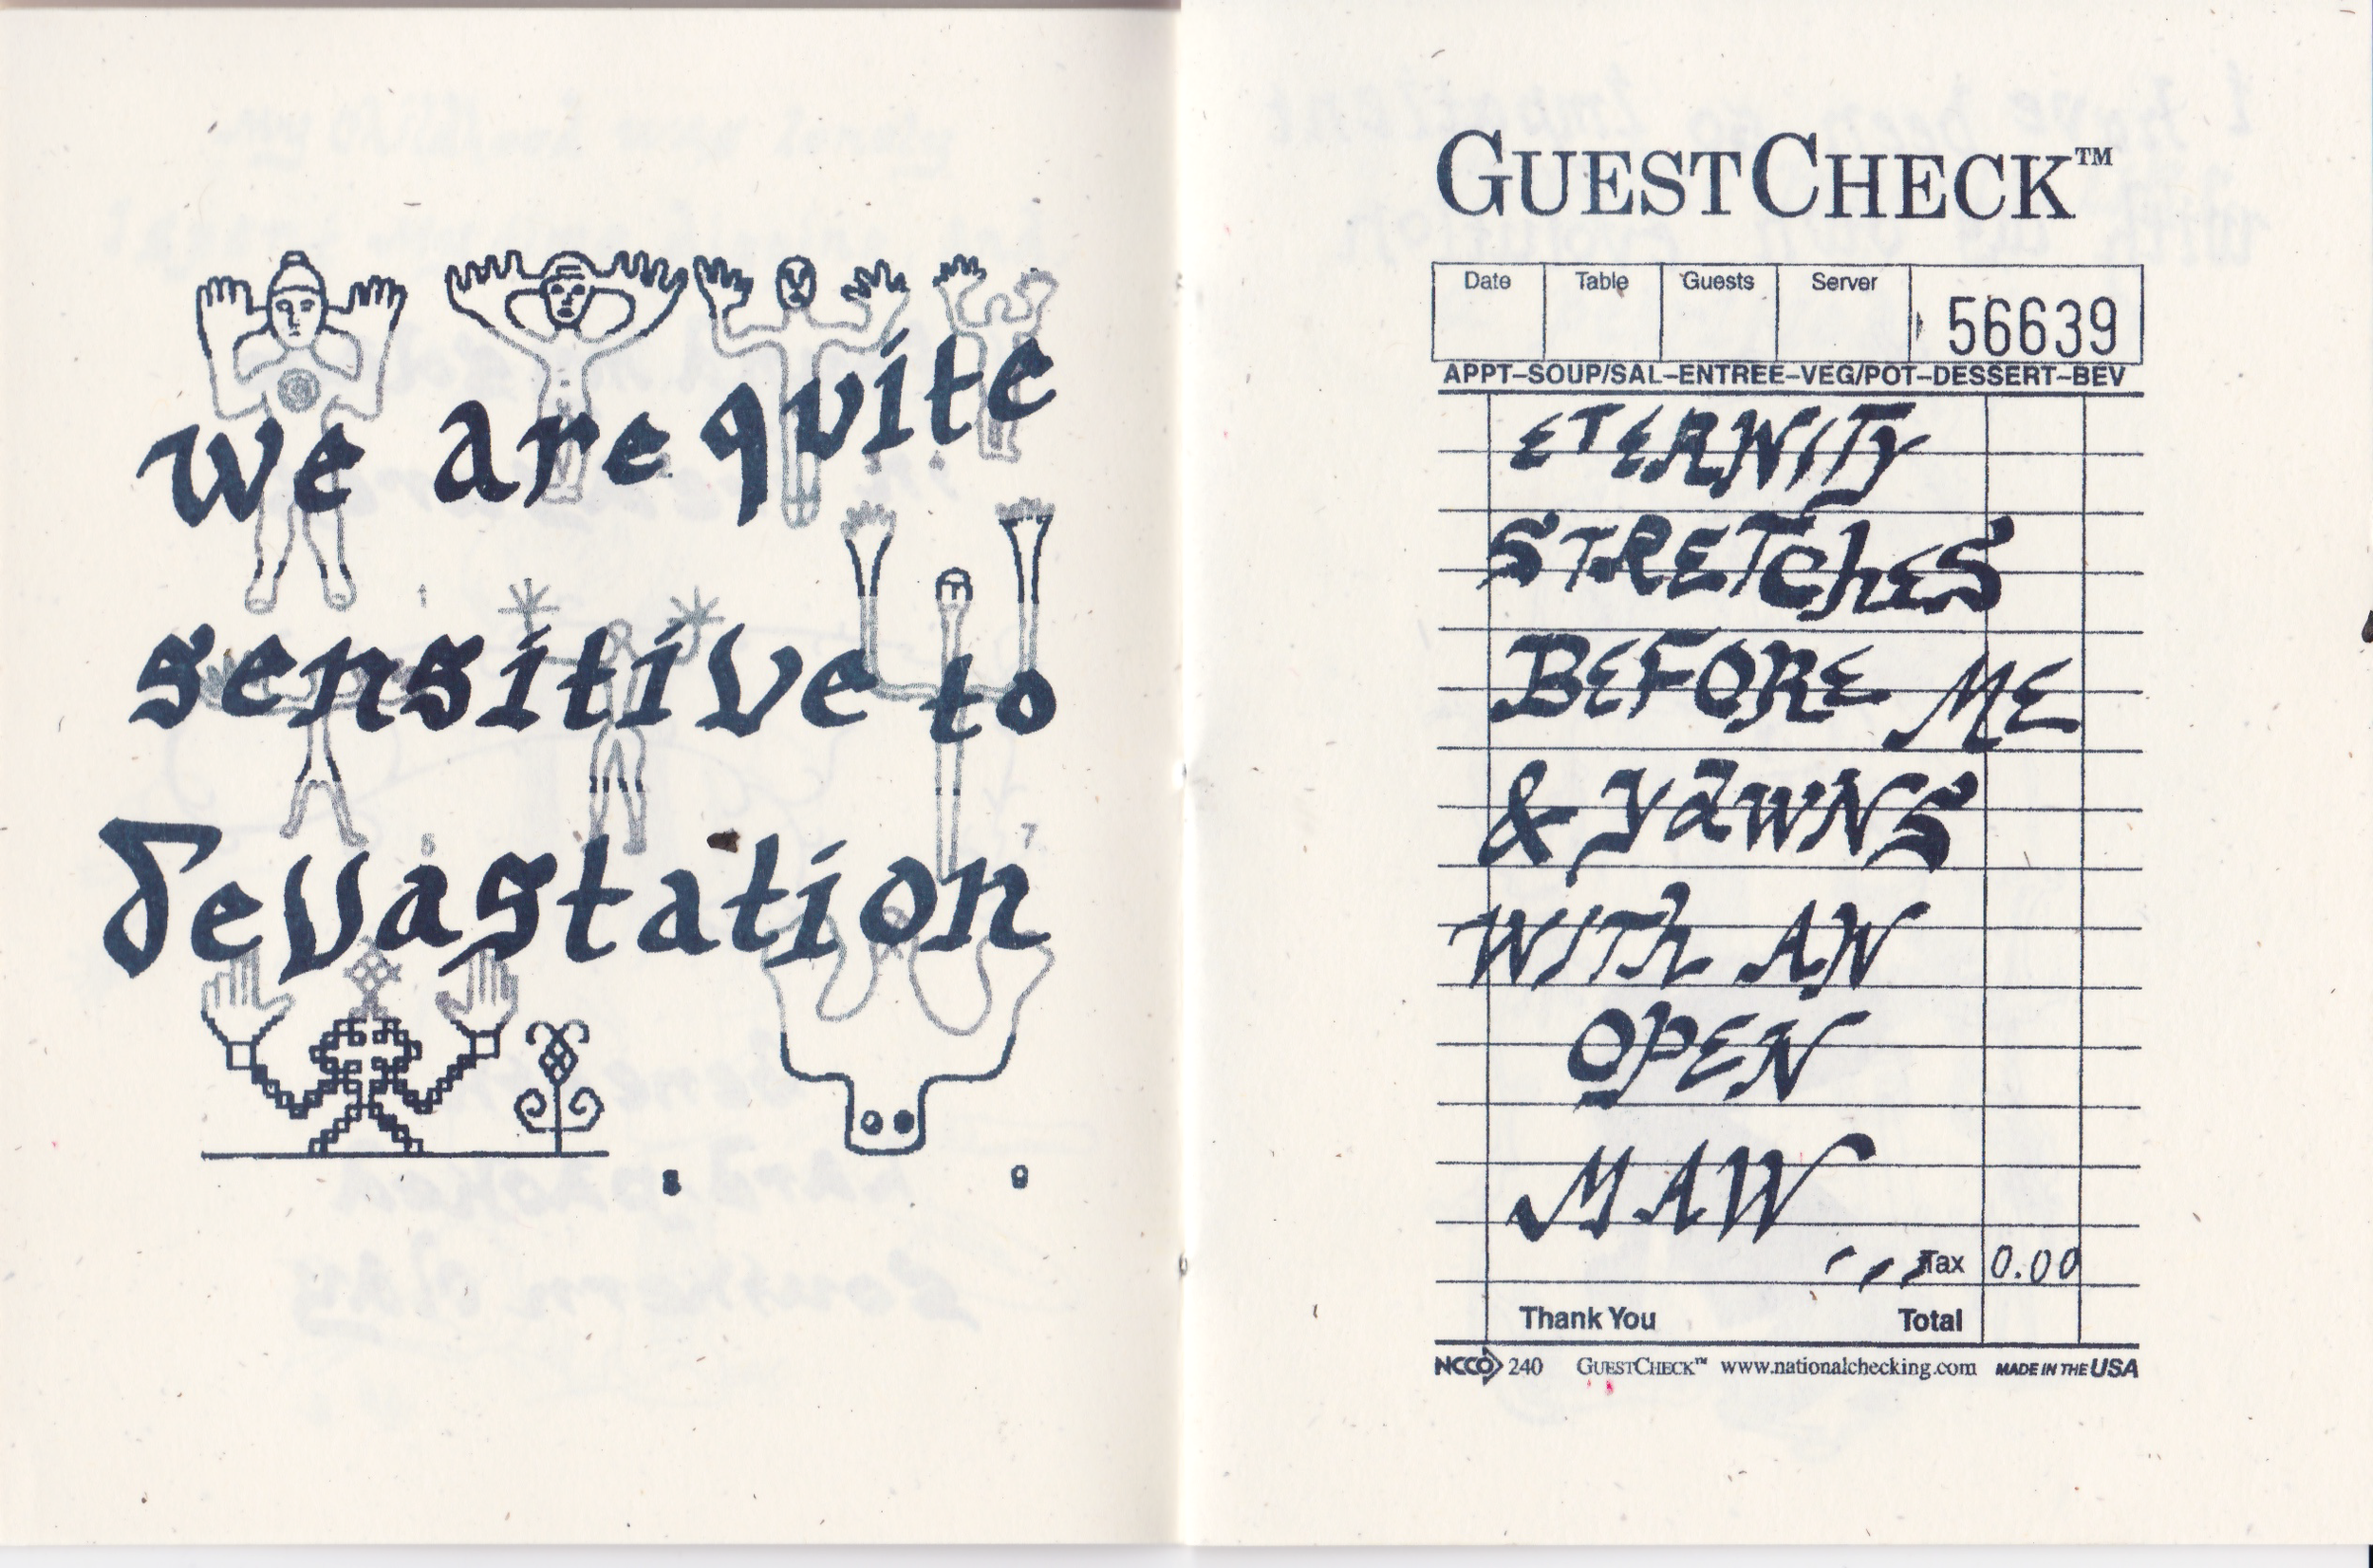 we are quite
sensitive to
devastation
1
2
3
4
5
7
8
9
GUESTCHECK™
Date Table Guests Server 56639
APPT–SOUP/SAL–ENTREE–VEG/POT–DESSERT–BEV
ETERNITY
STRETChES
BEFORE ME
& YaWNS
WITh AN
OPEN
MAW
Tax 0.00
Thank You Total
NCCO 240 GUESTCHECK™ www.nationalchecking.com MADE IN THE USA